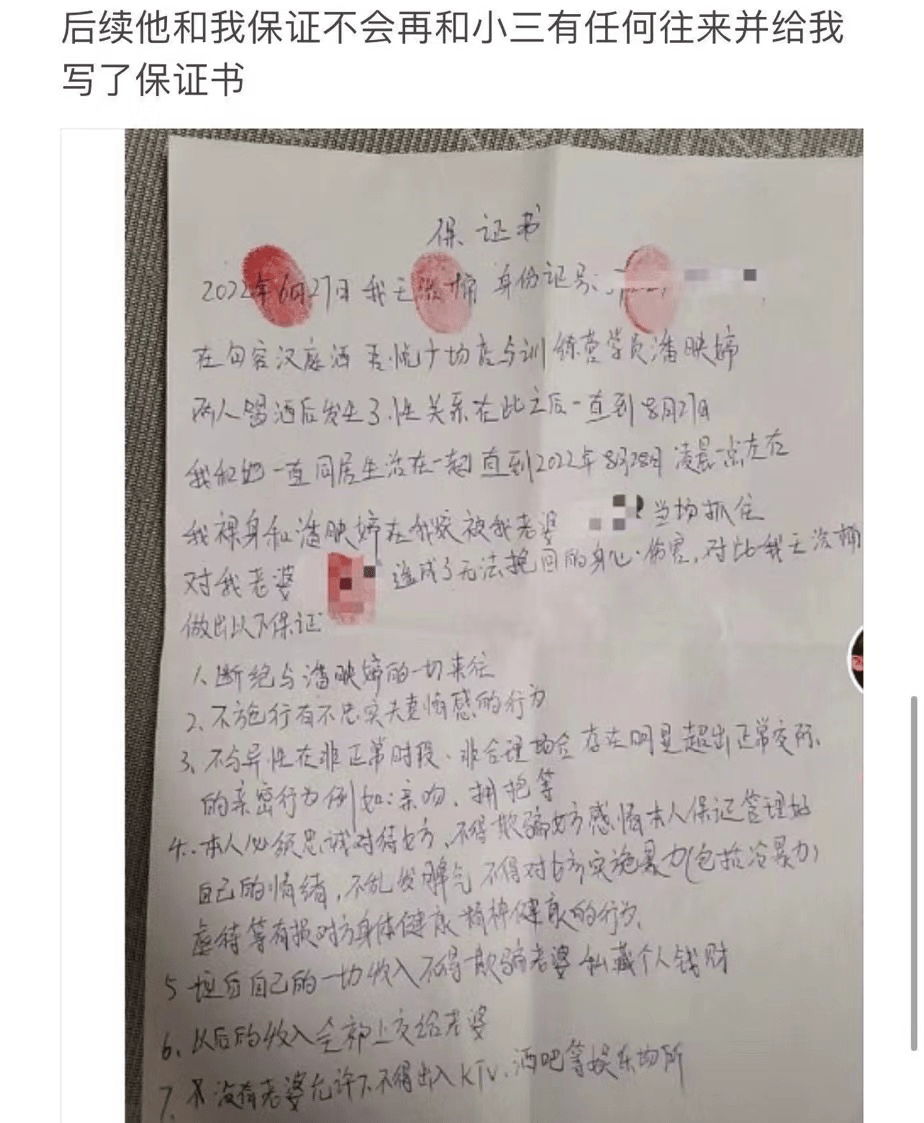 后续他和我保证不会再和小三有任何往来并给我
写了保证书
保证书
2022年6月27日 我王 身份证号:
在句容汉庭酒 吾悦广场店与训练营学员潘映婷
两人喝酒后发生了性关系在此之后一直到8月27日
我和她一直同居生活在一起直到2022年8月28日凌晨一点左右
我裸身和潘映婷在我家被我老婆 当场抓住
对我老婆 造成了无法挽回的身心伤害,对此我王
做出以下保证
1、断绝与潘映婷的一切来往
2、不施行有不忠实夫妻情感的行为
3、不与异性在非正常时段、非合理场合存在明显超出正常交际
的亲密行为例如:亲吻、拥抱等
4、本人必须忠诚对待对方,不得欺骗对方感情本人保证管理好
自己的情绪,不乱发脾气 不得对对方实施暴力(包括冷暴力)
虐待等有损对方身体健康 精神健康的行为
5 坦白自己的一切收入不得欺骗老婆 私藏个人钱财
6、以后的收入全部上交给老婆
7、没有老婆允许下不得出入KTV、酒吧等娱乐场所